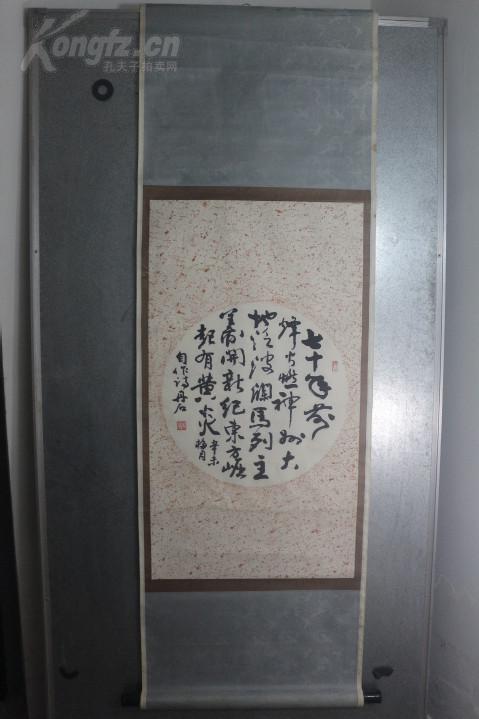 Kongfz.cn
孔夫子拍卖网
七十年前
烽火燃神州大
地泛波瀾馬列主
義開新紀東方崛
起有黄炎
辛未
梅月
自作詩丹石